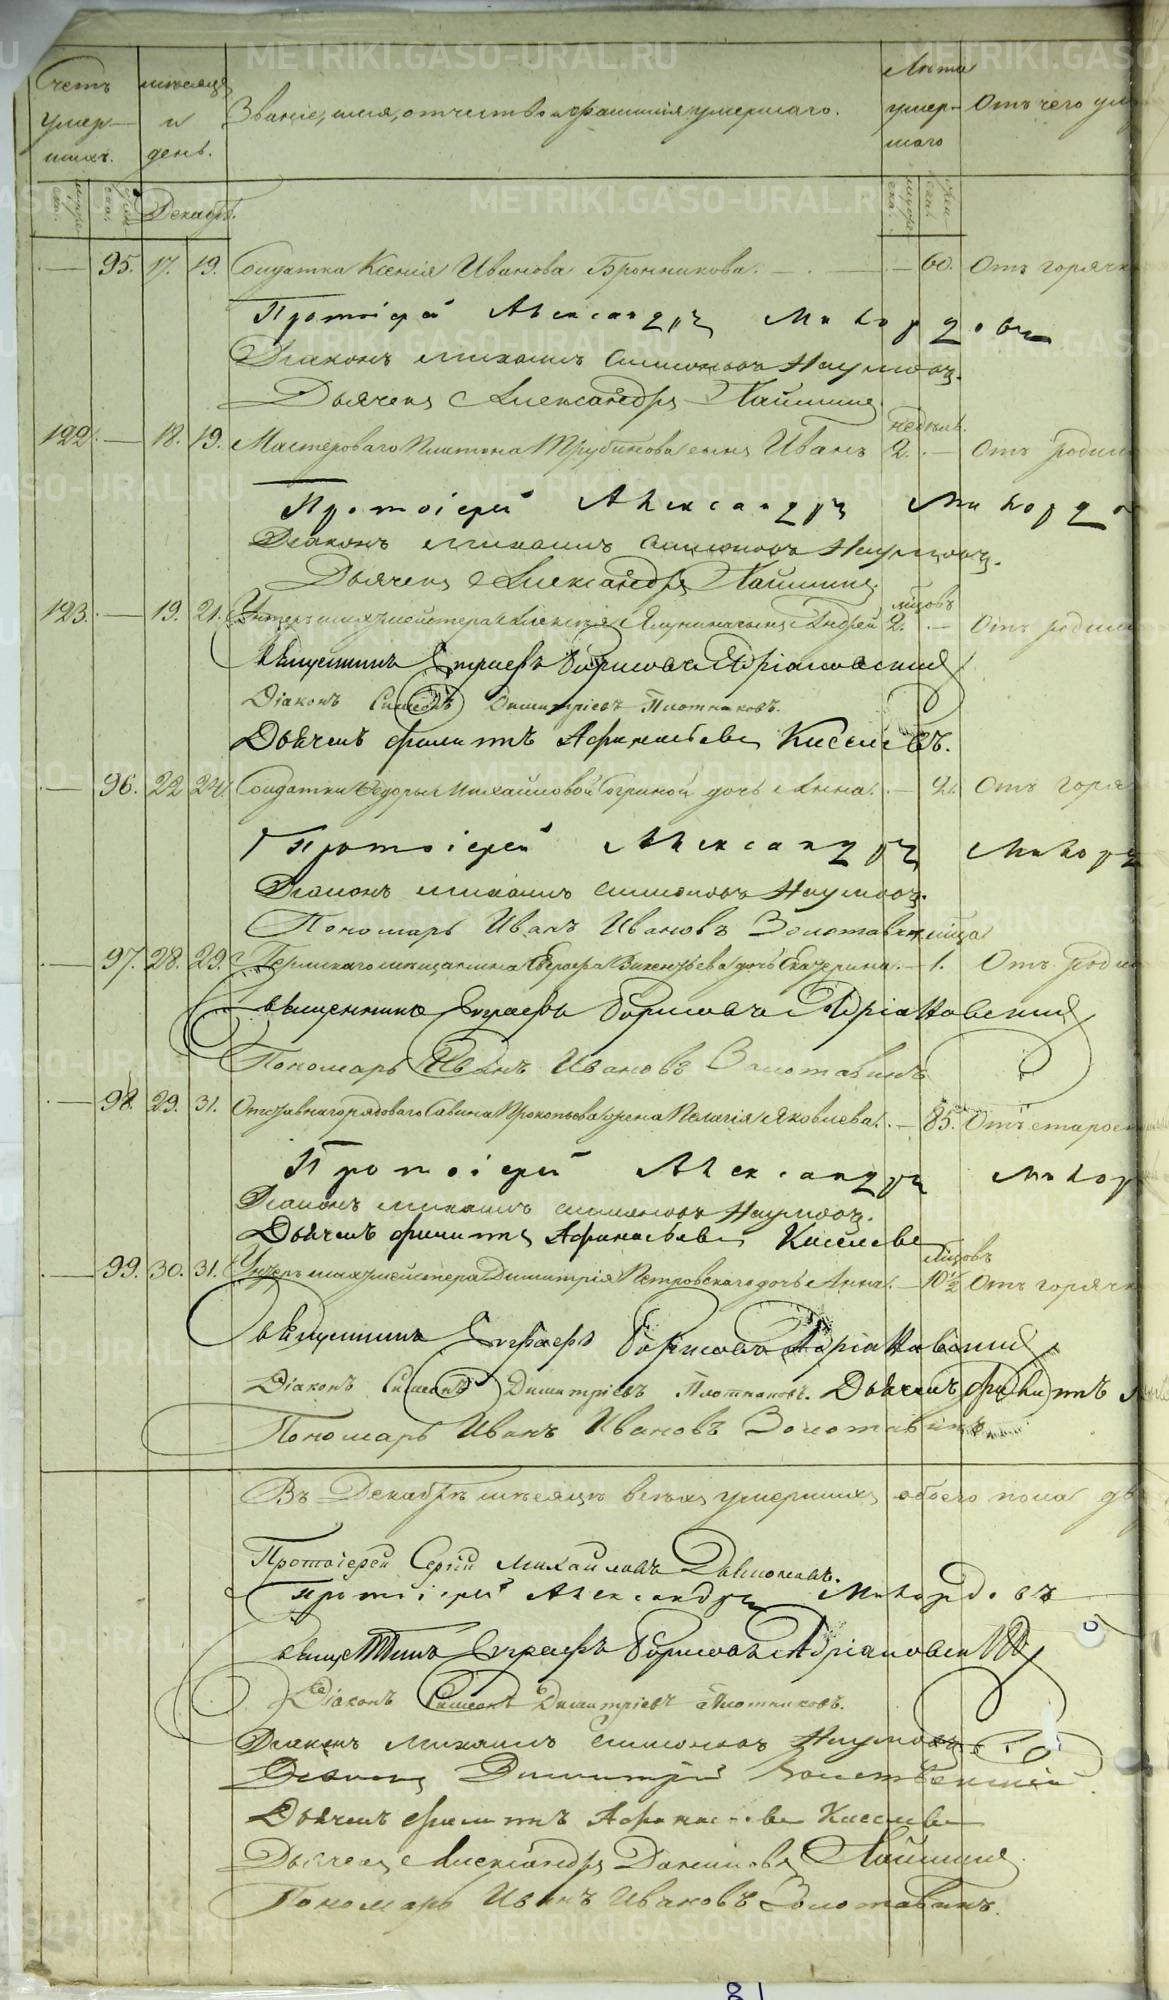 Счетъ умер-шихъ. мѣсяцъ и день. Званіе, имя, отчество и фамилія умершаго. Лѣта умер-шаго Отъ чего
Декабрь.
95. 17. 19. Солдатка Ксенія Иванова Бронникова. 60. Отъ горячк
Протоіерей Александръ Миловидовъ
Діаконъ Михаилъ Симоновъ Наумовъ.
Дьячекъ Александръ Пайминъ
122. 18. 19. Мастероваго Платона Трубинова сынъ Иванъ недѣль 2. Отъ родим
Протоіерей Александръ
Діаконъ Михаилъ Симоновъ Наумовъ.
Дьячекъ Александръ Пайминъ.
123. 19. 21. Унтеръ-шихтмейстера Алексѣя Ялунина сынъ Андрей мѣсяцовъ 2. Отъ родим
Священникъ Евграфъ Борисовъ Адріановскій
Діаконъ Симеонъ Димитріевъ Плотниковъ.
Дьячекъ Филиппъ Афанасьевъ Киселевъ.
96. 22 24. Солдатки Ѳедорьи Михайловой дочь Анна. 2. Отъ горя
Протоіерей Александръ
Діаконъ Михаилъ Симоновъ Наумовъ.
Пономарь Иванъ Ивановъ Золотавинъ
97. 28. 29. Пермскаго мѣщанина Викентьева дочь Екатерина. мѣсяца 1. Отъ роди
Священникъ Евграфъ Борисовъ Адріановскій
Пономарь Иванъ Ивановъ Золотавинъ
98. 29. 31. Отставнаго рядоваго Савина Прокопьева жена Пелагія Яковлева. 85. Отъ старос
Протоіерей Александръ
Діаконъ Михаилъ Симоновъ Наумовъ.
Дьячекъ Филиппъ Афанасьевъ Киселевъ
99. 30. 31. Унтеръ шихтмейстера Димитрія Петровскаго дочь Анна. мѣсяцовъ 10½ Отъ горячк
Священникъ Евграфъ Борисовъ Адріановскій
Діаконъ Симеонъ Димитріевъ Плотниковъ. Дьячекъ Филиппъ
Пономарь Иванъ Ивановъ Золотавинъ
Въ Декабрѣ мѣсяцѣ всѣхъ умершихъ обоего пола
Протоіерей Сергій Михайловъ
Протоіерей Александръ Миловидовъ
Священникъ Евграфъ Борисовъ Адріановскій
Діаконъ Симеонъ Димитріевъ Плотниковъ.
Діаконъ Михаилъ Симоновъ Наумовъ.
Діаконъ Димитрій
Дьячекъ Филиппъ Афанасьевъ Киселевъ
Дьячекъ Александръ Даниловъ Пайминъ.
Пономарь Иванъ Ивановъ Золотавинъ.
METRIKI.GASO-URAL.RU